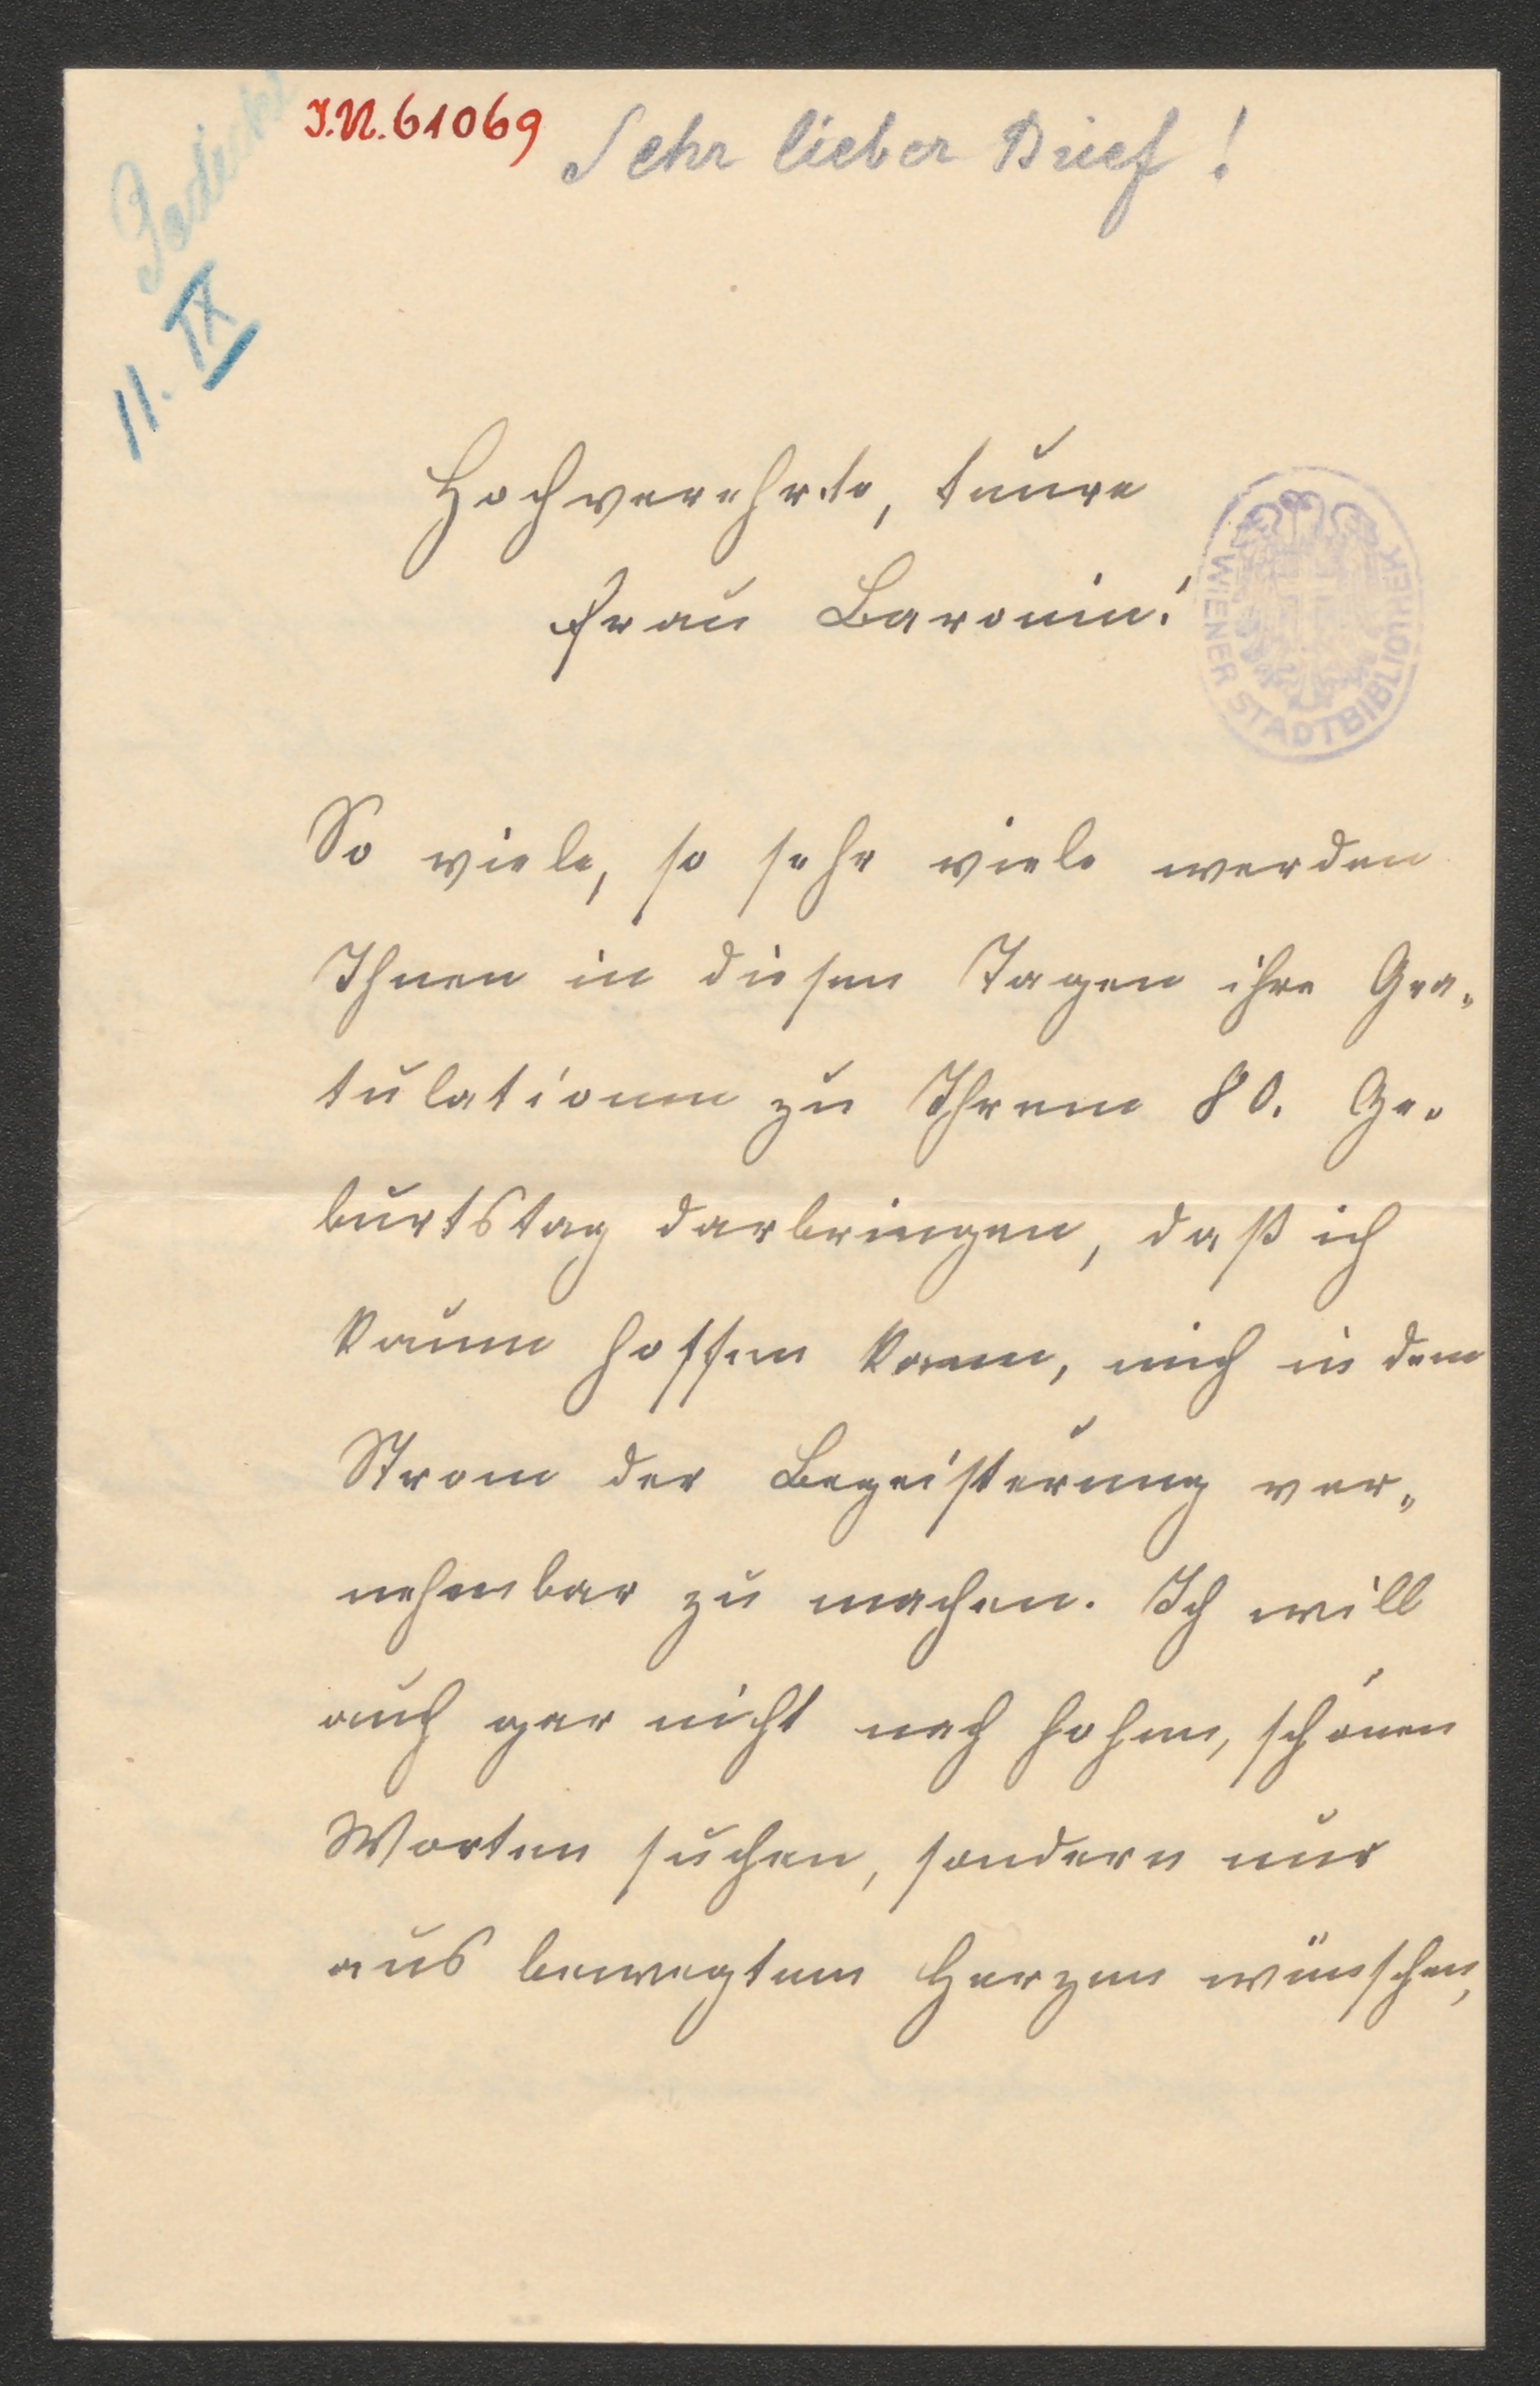 J.N. 61069
Sehr lieber Brief!
11. IX
Hochverehrte, teure
Frau Baronin!
WIENER STADTBIBLIOTHEK
So viele, so sehr viele werden
Ihnen in diesen Tagen ihre Gra-
tulationen zu Ihrem 80. Ge-
burtstag darbringen, daß ich
kaum hoffen kann, mich in dem
Strom der Begeisterung ver-
nehmbar zu machen. Ich will
auch gar nicht nach hohen, schönen
Worten suchen, sondern nur
aus bewegtem Herzen wünschen,